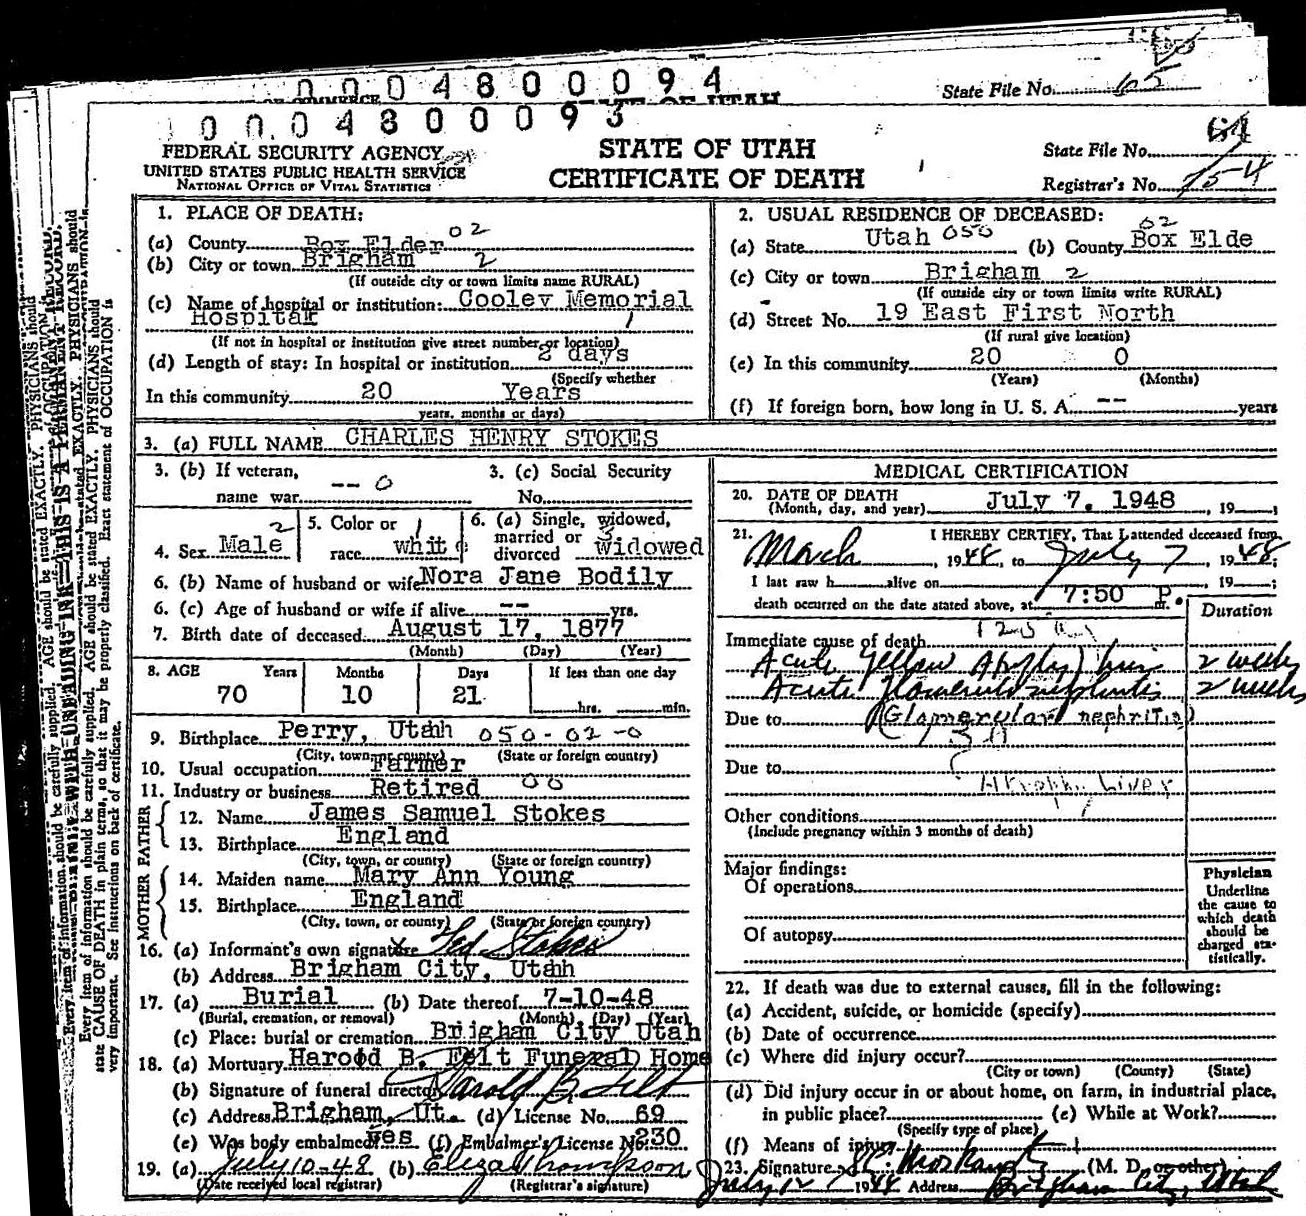 0004800094
STATE OF UTAH
State File No. 65
0004800093
FEDERAL SECURITY AGENCY
UNITED STATES PUBLIC HEALTH SERVICE
NATIONAL OFFICE OF VITAL STATISTICS
STATE OF UTAH
CERTIFICATE OF DEATH
State File No.
Registrar's No. 754
1. PLACE OF DEATH:
(a) County Box Elder 02
(b) City or town Brigham 2
(If outside city or town limits name RURAL)
(c) Name of hospital or institution: Cooley Memorial
Hospital 1
(If not in hospital or institution give street number or location)
(d) Length of stay: In hospital or institution 2 days
(Specify whether
In this community 20 Years
years, months or days)
2. USUAL RESIDENCE OF DECEASED:
(a) State Utah 050 (b) County Box Elde 02
(c) City or town Brigham 2
(If outside city or town limits write RURAL)
(d) Street No. 19 East First North
(If rural give location)
(e) In this community 20 0
(Years) (Months)
(f) If foreign born, how long in U. S. A. -- years
3. (a) FULL NAME CHARLES HENRY STOKES
3. (b) If veteran,
name war -- 0
3. (c) Social Security
No.
4. Sex Male 2
5. Color or
race white 1
6. (a) Single, widowed,
married or
divorced widowed 3
6. (b) Name of husband or wife Nora Jane Bodily
6. (c) Age of husband or wife if alive -- yrs.
7. Birth date of deceased August 17, 1877
(Month) (Day) (Year)
8. AGE Years Months Days If less than one day
70 10 21 hrs. min.
9. Birthplace Perry, Utah 050-02-0
(City, town, or county) (State or foreign country)
10. Usual occupation Farmer
11. Industry or business Retired 00
FATHER
12. Name James Samuel Stokes
13. Birthplace England
(City, town, or county) (State or foreign country)
MOTHER
14. Maiden name Mary Ann Young
15. Birthplace England
(City, town, or county) (State or foreign country)
16. (a) Informant's own signature x Ted Stokes
(b) Address Brigham City, Utah
17. (a) Burial (b) Date thereof 7-10-48
(Burial, cremation, or removal) (Month) (Day) (Year)
(c) Place: burial or cremation Brigham City Utah
18. (a) Mortuary Harold B. Felt Funeral Home
(b) Signature of funeral director Harold B. Felt
(c) Address Brigham, Ut. (d) License No. 69
(e) Was body embalmed? Yes (f) Embalmer's License No. 230
19. (a) July 10-48 (b) Eliza Thompson
(Date received local registrar) (Registrar's signature)
MEDICAL CERTIFICATION
20. DATE OF DEATH
(Month, day, and year) July 7, 1948, 19
21. I HEREBY CERTIFY, That I attended deceased from
March, 1948, to July 7, 1948
I last saw h alive on , 19 ;
death occurred on the date stated above, at 7:50 P. m.
Duration
Immediate cause of death
Acute Yellow Atrophy liver 2 weeks
Acute Glomerulo nephritis 2 weeks
Due to (Glomerular nephritis)
30
Due to
Atrophy Liver
Other conditions
(Include pregnancy within 3 months of death)
Major findings:
Of operations
Of autopsy
Physician
Underline
the cause to
which death
should be
charged sta-
tistically.
22. If death was due to external causes, fill in the following:
(a) Accident, suicide, or homicide (specify)
(b) Date of occurrence
(c) Where did injury occur?
(City or town) (County) (State)
(d) Did injury occur in or about home, on farm, in industrial place,
in public place? (e) While at Work?
(Specify type of place)
(f) Means of injury
23. Signature (M. D. or other)
July 12 1948 Address Brigham City, Utah
Every item of information should be carefully supplied. AGE should be stated EXACTLY. PHYSICIANS should
state CAUSE OF DEATH in plain terms, so that it may be properly classified. Exact statement of OCCUPATION is
very important. See instructions on back of certificate.